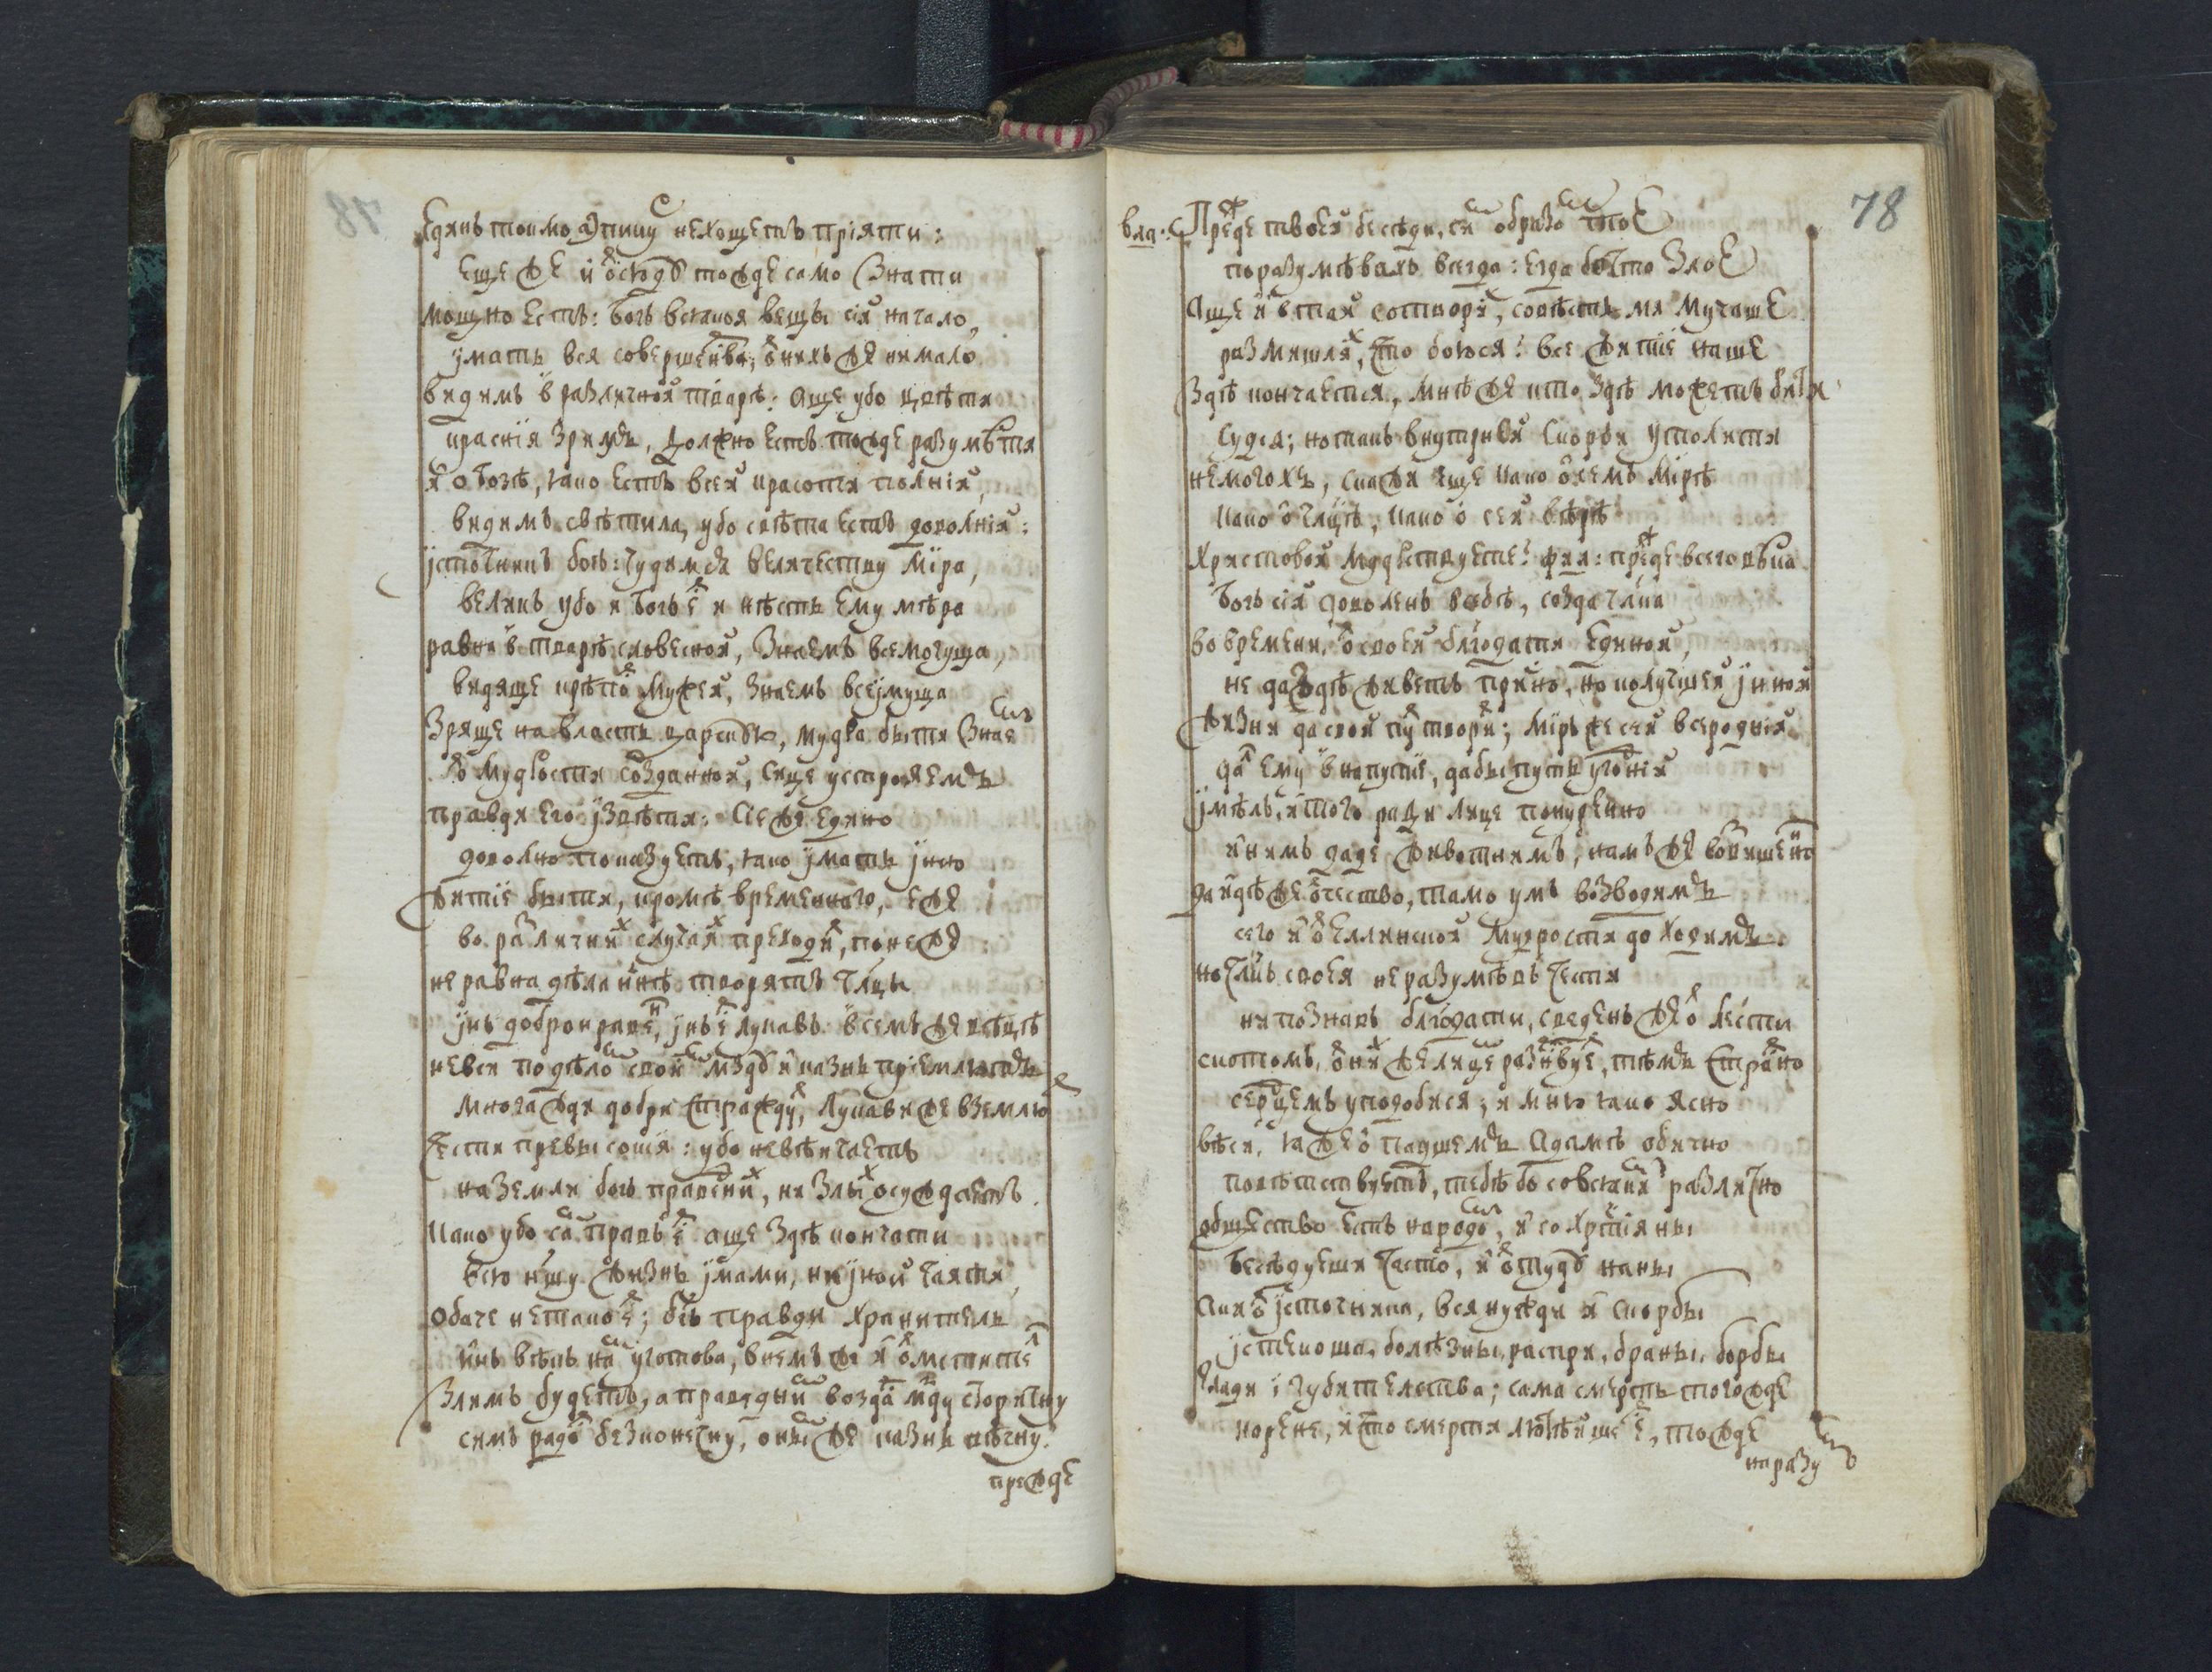 Єдинъ токмо Епикꙋ͛ нехощетъ прїяти:
Еще же и ѿсюдꙋ тожде само знати
мощно есть: Богъ всякоя вещы сїй начало,
имать вся совершенва, ѿнихъже немало
видимъ в различной тварѣ: Аще убо цвѣти
красния зримъ, должно есть тожде разумѣти
и о Бозѣ, яко есть всей красоти полній,
видимъ свѣтила, убо свѣта есть доволній:
источникъ богъ: чудимся величеству мїра,
великъ убо и Богъ е и нѣсть ему мѣра
равни в тварѣ словесной, Знаемъ всемогуща,
видяще крѣпо мужей, знаемъ всеимуща
Зряще на власть царскую, мудра быти знае
ѿ мудрости созданной, сице устрояемъ
правди его извѣти: Сїе же едино
доволно показуетъ, яко имать ино
житїе быти, кромѣ временнаго, еже
во различних случаях преходи, понеже
не равна дѣла инѣ творятъ члцы
инъ добронраве, инъ е лукавъ. в семъ же вѣцѣ
невси по дѣло свои мздꙋ и казнь прїемлютъ
многажди добри стражду, лукави же вземлю
чести превысошїя: убо невѣнчаетъ
наземли богъ праведни, ни злых осуждаетъ.
Како убо са правъ е аще здѣ кончати
всю нш҃у жизнь имами, ни иной чаяти,
обаче нетако е; бг҃ъ правди хранитель
инъ вѣкъ на угótова, внемъ же и ѿмститель
злимъ будетъ, а праведни возда мзду сторичну
симъ радо безконечну, оны же казнь вѣчну.
прежде
78
вла: Прежде твоея бесѣди, си образо тое
поразумѣвахъ всегда: егда бо что злое
Аще и втай сотвори, совѣсть мя мучаше
размишля, что боюся? все житїе наше
Здѣ кончается, мнѣ же кто здѣ можетъ бити
Судїя; но такъ внутрней скорби утолити
немогохъ, скажи еще како о семъ мїрѣ
како о члцѣ, како о сей вѣрѣ
Христовой мудрствуете? фил: прежде всего вѣка
Богъ сїй доволенъ всебѣ, созда члка
во времени, ѿ своей блгодати единой,
не да здѣ живетъ присно, но колучшей иной
жизни да свой пу твори; мїръ же сей всероднїй
да ему в напутїе, дабы путь угоднїй
имѣлъ, и того ради лице понуренно
инимъ даде животнимъ, намъ же возвишенно
да идѣже отечество, тамо умъ возводимъ
сего и ѿ Еллинской мудрости доходимъ.
но члкъ своея неразумѣвъ чести
ни познавъ блгодати, сведенъ же ѿ лести
скотомъ, они же лице разнвуе, тѣмъ странно
сердцемъ уподобися; и мню яко ясно
вѣси, яже о падшемъ Адамѣ обично
повѣствуетъ, тебѣ бо совсякия различно
общество есть народо, и со Хрстїяны
бесѣдуеши часто, и ѿтуду наны
Аки ѿ источника, вся нужди и скорбы
истекоша, болѣзны, распри, браны, борбы
Глади и губителства; сама смерть тогожде
корене, и что смерти лютѣйше е, тожде
наразу